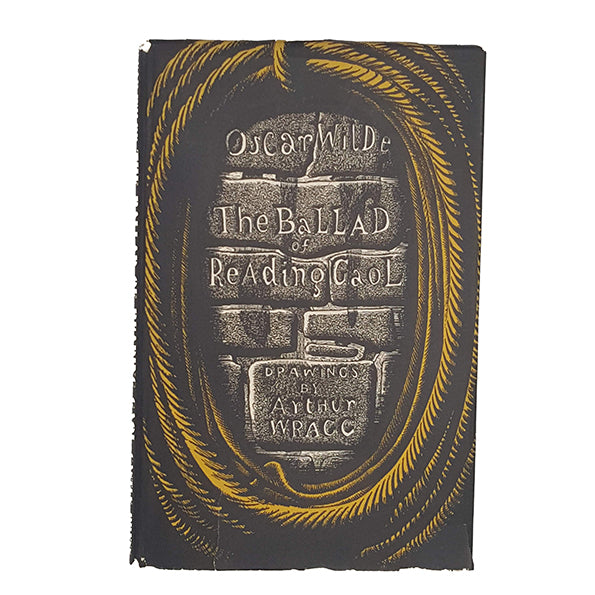 Oscar Wilde
The BaLLAD
of
ReAding GaoL
DRAWINGS
BY
Arthur
WRAGG